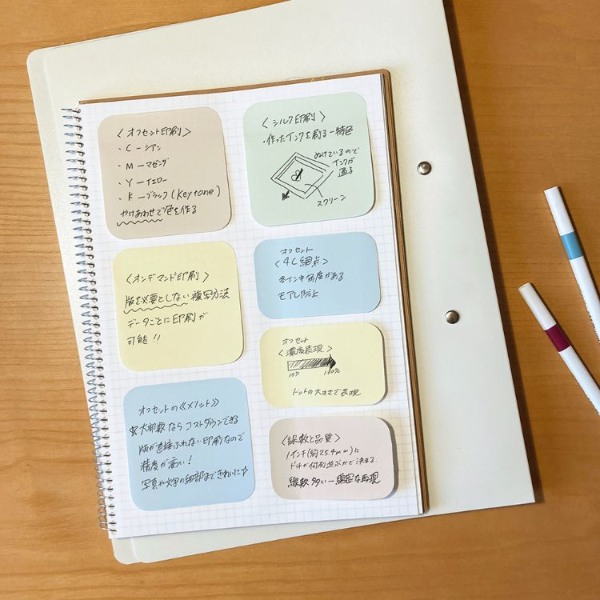 〈オフセット印刷〉
・C－シアン
・M－マゼンダ
・Y－イエロー
・K－ブラック(Keytone)
かけあわせで色を作る
〈オンデマンド印刷〉
版を必要としない複写方法
データごとに印刷が
可能!!
オフセットの《メリット》
大部数ならコストダウンできる
版が直接ふれない印刷なので
精度が高い!
写真や文字の細部まできれいに
〈シルク印刷〉
・作ったインクを刷る－特色
ぬけているので
インクが
通る
スクリーン
オフセット
〈4C網点〉
各インキ角度がある
モアレ防止
オフセット
〈濃度表現〉
10% 100%
ドットの大きさで表現
〈線数と品質〉
1インチ(約25.4mm)に
ドットが何個並ぶかで決まる
線数多い－緻密な表現